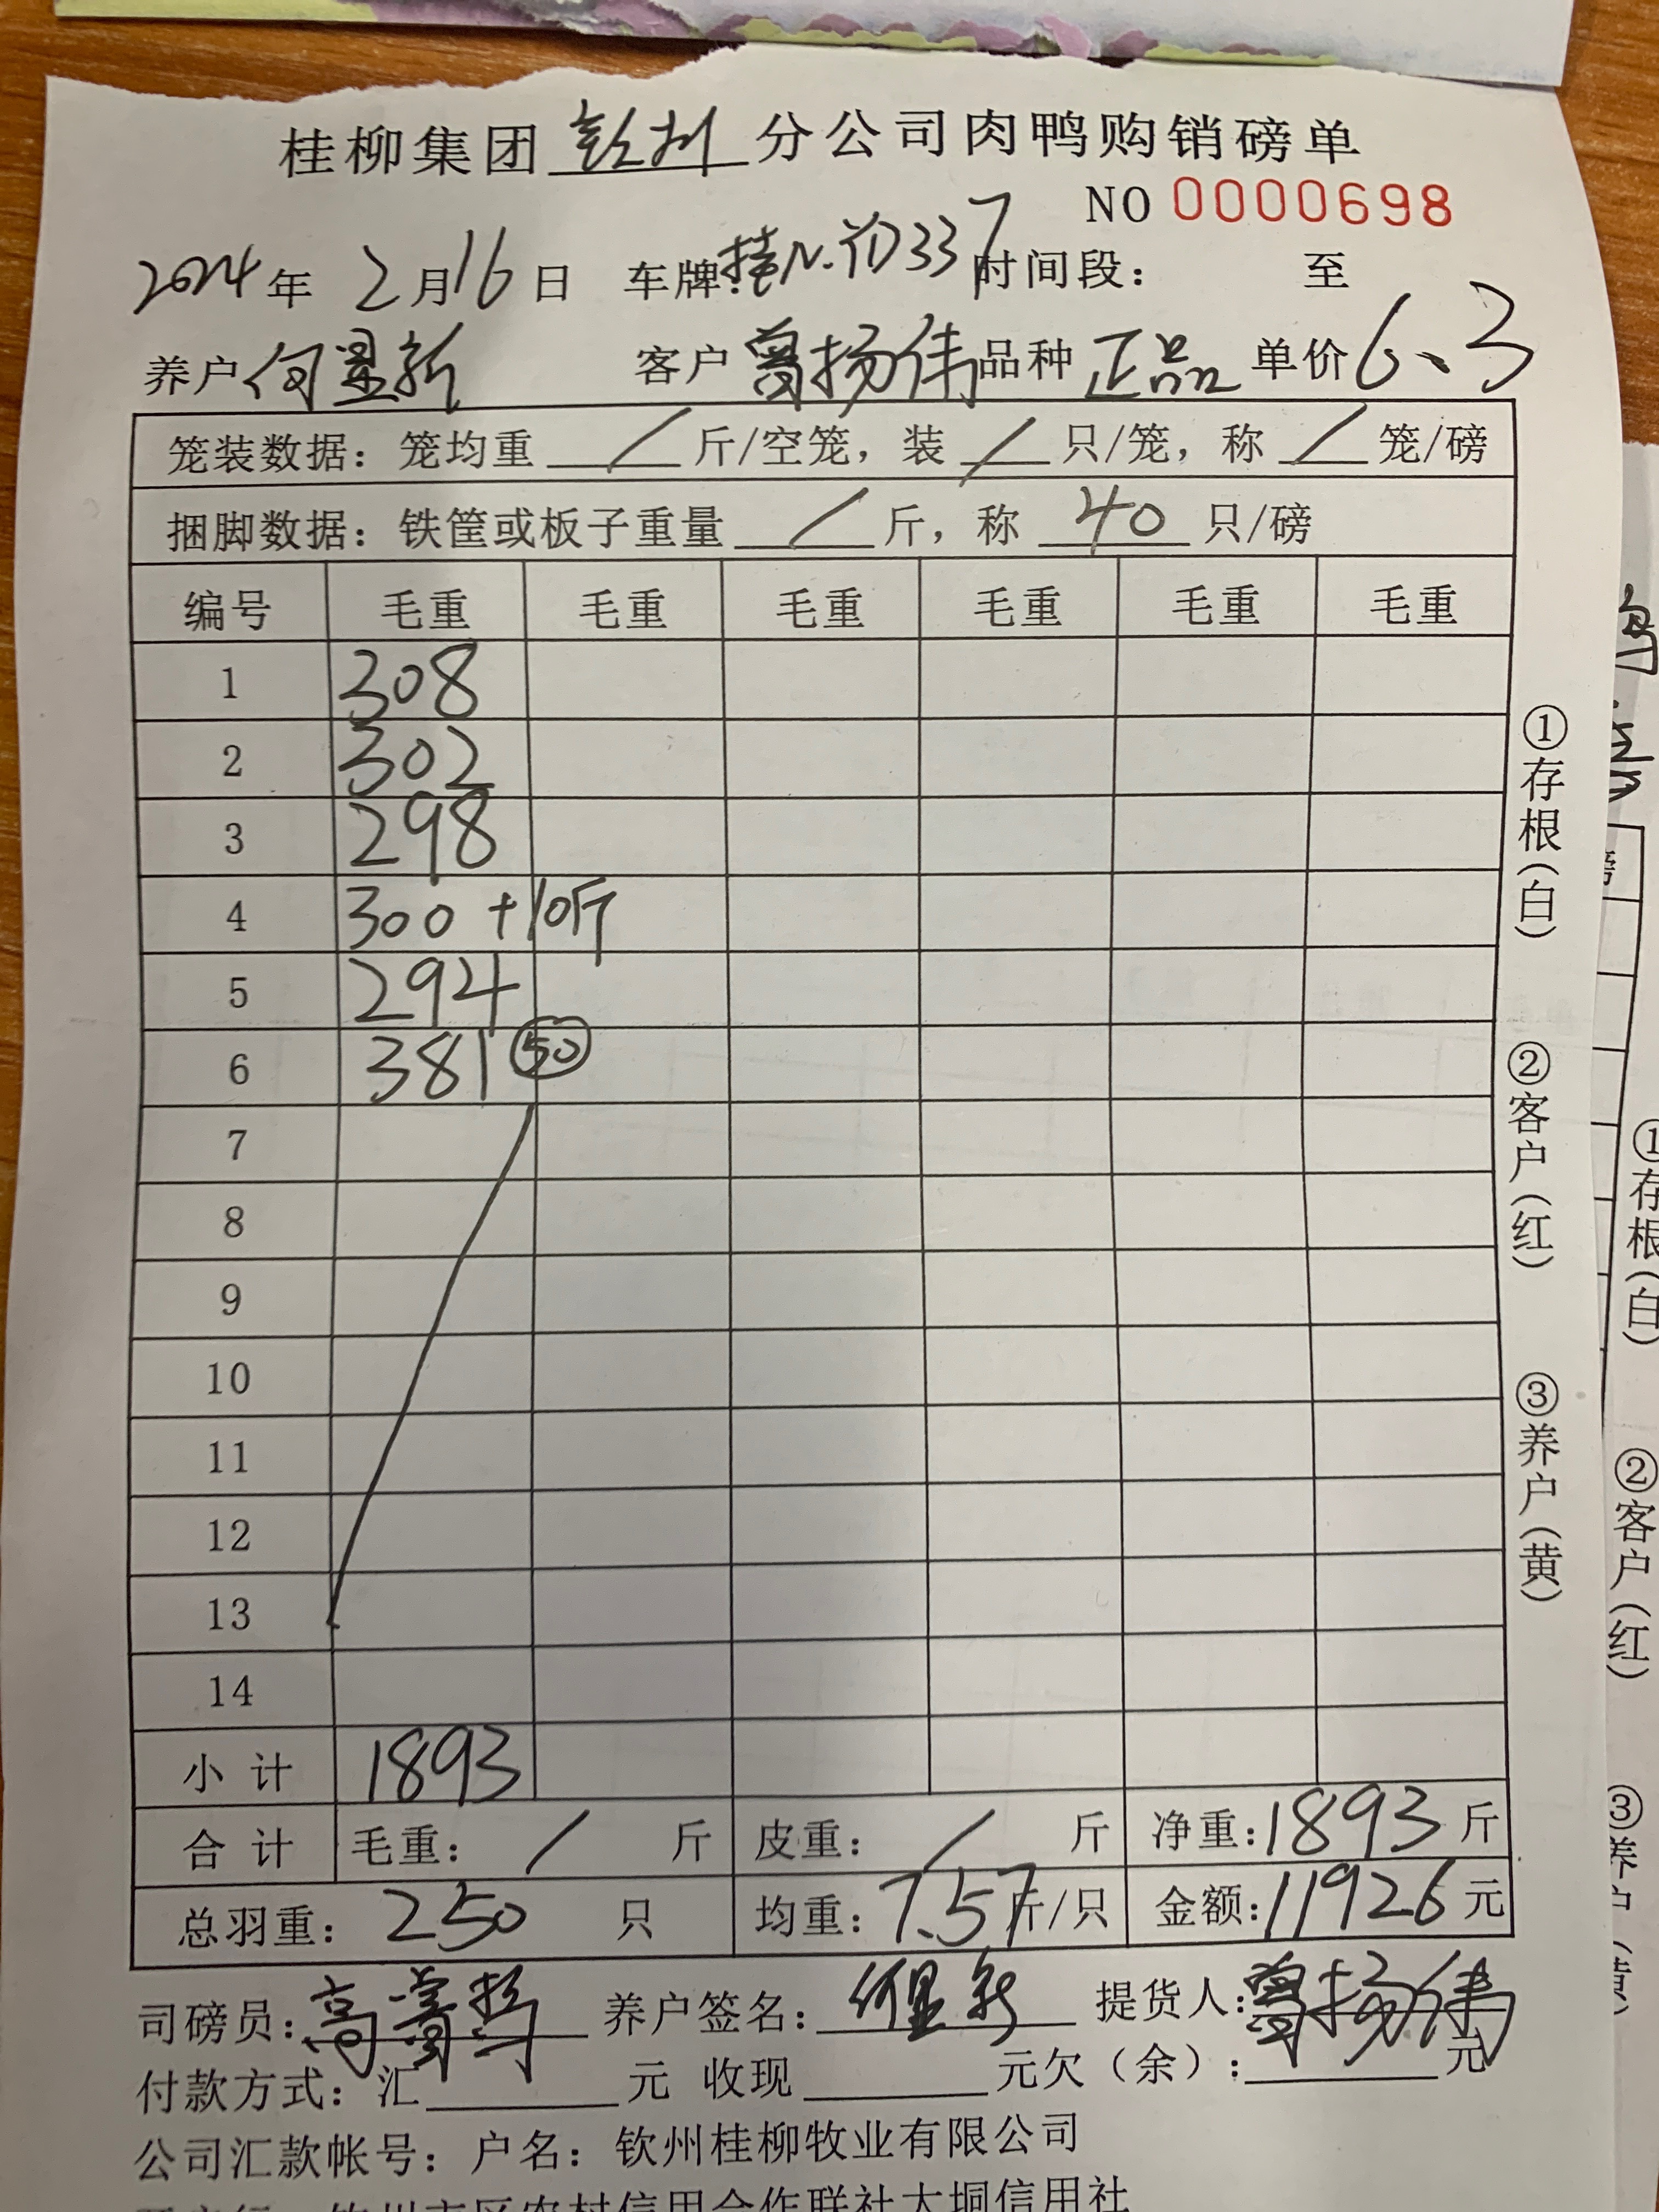 桂柳集团钦州分公司肉鸭购销磅单
NO 0000698
2024年 2月16日 车牌:桂N· 337 时间段: 至
养户 何显新 客户 曾扬伟 品种 正品 单价 6、3
笼装数据: 笼均重 / 斤/空笼, 装 / 只/笼, 称 / 笼/磅
捆脚数据: 铁筐或板子重量 / 斤, 称 40 只/磅
编号 毛重 毛重 毛重 毛重 毛重 毛重
1 308
2 302
3 298
4 300 +10斤
5 294
6 381 50
7
8
9
10
11
12
13
14
小计 1893
合计 毛重: / 斤 皮重: / 斤 净重: 1893 斤
总羽重: 250 只 均重: 7.57 斤/只 金额: 11926 元
司磅员: 高 养户签名: 何显新 提货人: 曾扬伟
付款方式: 汇 元 收现 元欠(余): 元
公司汇款帐号: 户名: 钦州桂柳牧业有限公司
钦州市区农村信用合作联社大垌信用社
①存根(白) ②客户(红) ③养户(黄)
①存根(白) ②客户(红) ③养户(黄)